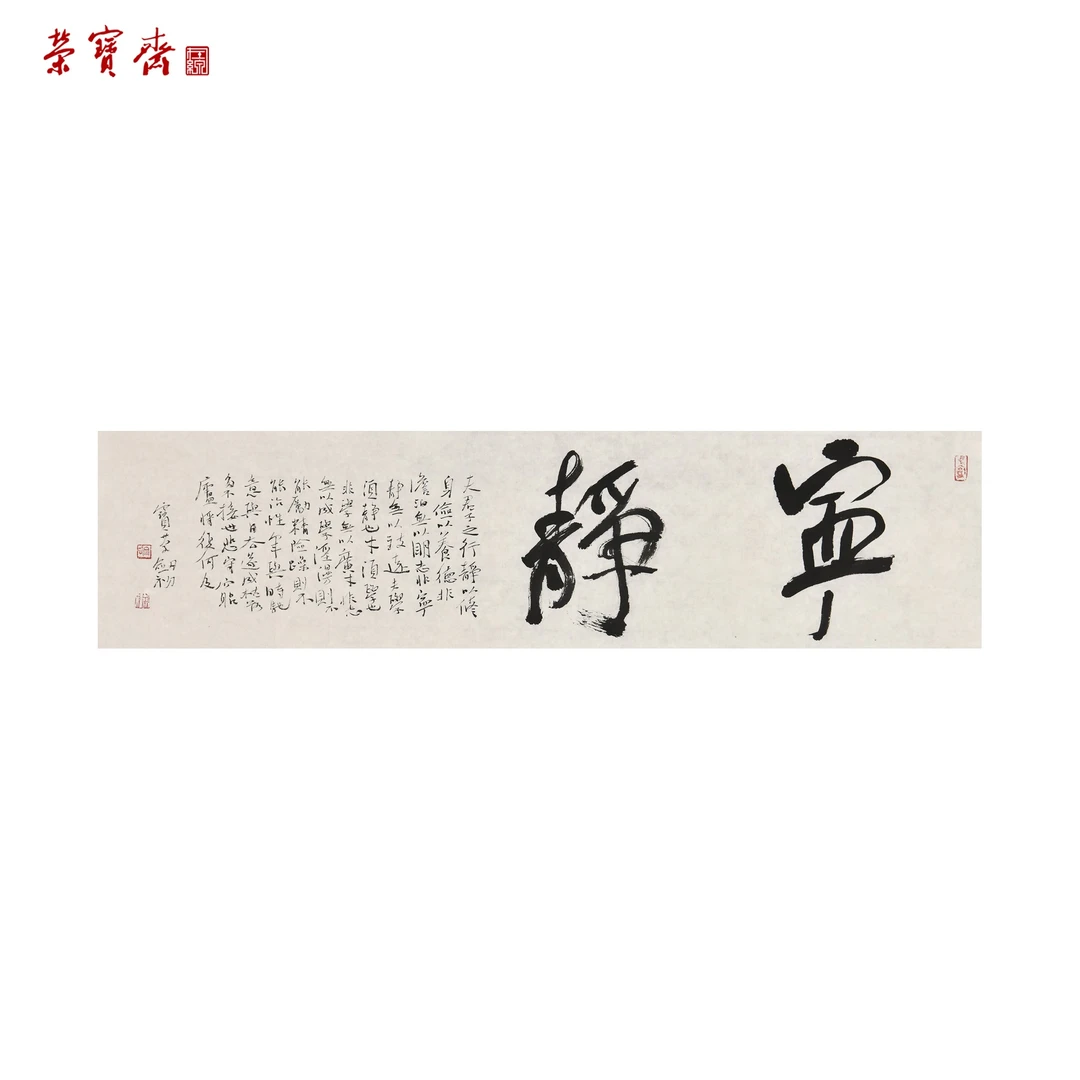 榮寶齋
寧靜
夫君子之行靜以脩
身儉以養德非
澹泊無以明志非寧
靜無以致遠夫學
須靜也才須學也
非學無以廣才非志
無以成學淫漫則不
能勵精險躁則不
能治性年與時馳
意與日去遂成枯落
多不接世悲守窮
廬將復何及